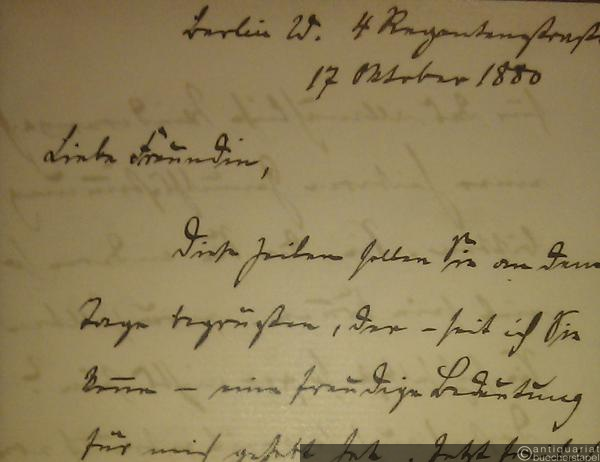 Berlin W. 4 Regentenstraße
17 Oktober 1880
Liebe Freundin,
Diese Zeilen sollen Sie an dem
Tage begrüßen, der – seit ich Sie
kenne – eine freudige Bedeutung
für mich gehabt hat. Jetzt
antiquariat
buecherstapel